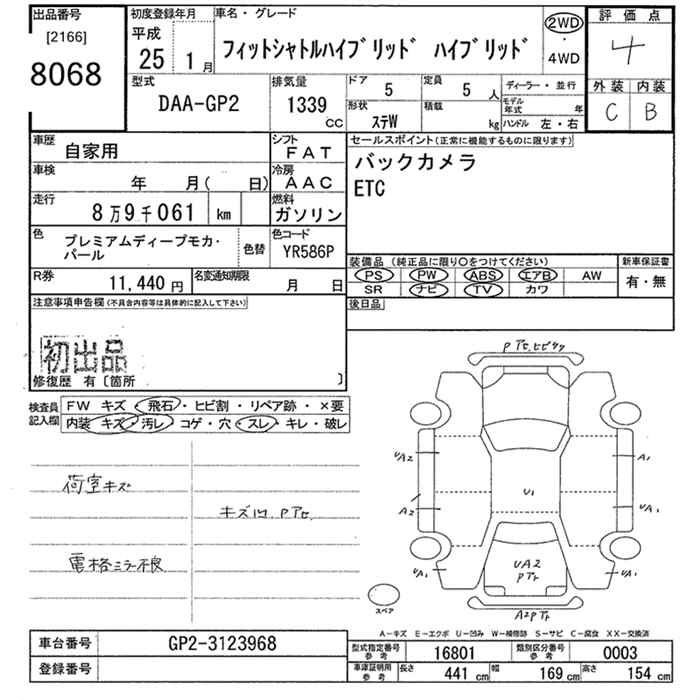 出品番号
[2166]
8068
初度登録年月
平成
25 1 月
車名・グレード
フィットシャトルハイブリッド ハイブリッド
2WD
・
4WD
評価点
4
外装 内装
C B
型式
DAA-GP2
排気量
1339
CC
ドア
5
定員
5 人
形状
ステW
積載
kg
ディーラー・並行
モデル年式 年
ハンドル 左・右
車歴
自家用
シフト
FAT
車検
年 月( 日)
冷房
AAC
走行
8万9千061 km
燃料
ガソリン
色
プレミアムディープモカ・
パール
色替
色コード
YR586P
R券
11,440 円
名変通知期限
月 日
セールスポイント(正常に機能するものに限ります)
バックカメラ
ETC
装備品 (純正品に限り○をつけてください)
PS PW ABS エアB AW
SR ナビ TV カワ
新車保証書
有・無
後日品
注意事項申告欄(不具合内容等は具体的に記入して下さい)
初出品
修復歴 有〔箇所 〕
検査員
記入欄
FW キズ・飛石・ヒビ割・リペア跡・×要
内装 キズ・汚レ・コゲ・穴・スレ・キレ・破レ
荷室キズ
キズ凹 PTピ
電格ミラー不良
PTピ ヒビワレ
UA2
A1
A2
U1
UA1
UA1
UA1
UA2
PTピ
A2PTピ
スペア
A-キズ E-エクボ U-凹み W-補修跡 S-サビ C-腐食 XX-交換済
車台番号
GP2-3123968
登録番号
型式指定番号
参考
16801
類別区分番号
参考
0003
車庫証明用
参考
長さ 441 cm 幅 169 cm 高さ 154 cm